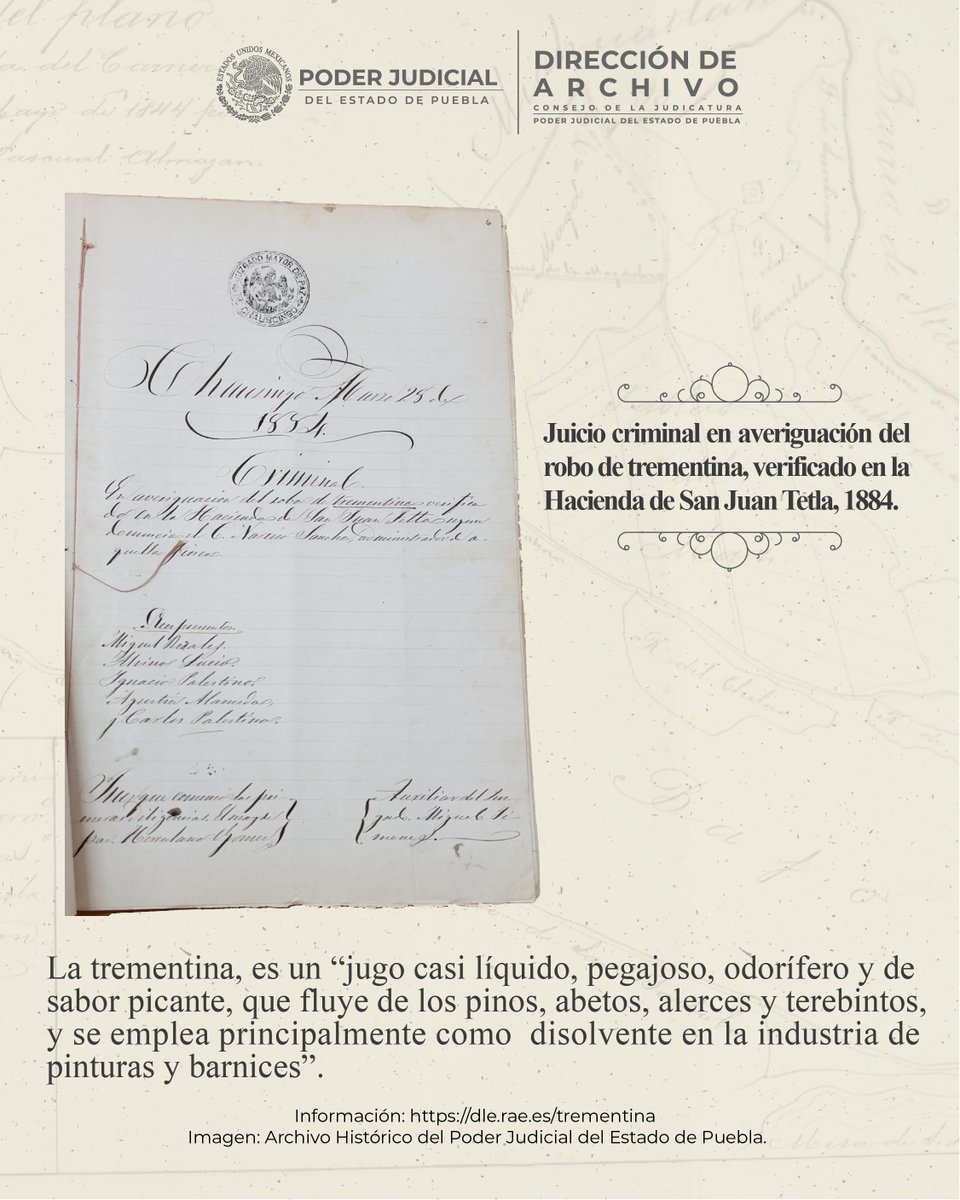 ESTADOS UNIDOS MEXICANOS
PODER JUDICIAL
DEL ESTADO DE PUEBLA
DIRECCIÓN DE
ARCHIVO
CONSEJO DE LA JUDICATURA
PODER JUDICIAL DEL ESTADO DE PUEBLA
6
JUZGADO MAYOR DE PAZ
CHAUSCINGO
1884.
Criminal
En averiguacion del robo de trementina verifica
do en la Hacienda de San Juan Tetla segun
denuncia el C. administrador de a
quella finca
Miguel
Lucio
Ignacio Palestino
Agustin
y Carlos Palestino
Juez que conoce las pri
meras diligencias
Auxiliar del Juz
gado Miguel Ji
menez
Juicio criminal en averiguación del
robo de trementina, verificado en la
Hacienda de San Juan Tetla, 1884.
La trementina, es un “jugo casi líquido, pegajoso, odorífero y de
sabor picante, que fluye de los pinos, abetos, alerces y terebintos,
y se emplea principalmente como disolvente en la industria de
pinturas y barnices”.
Información: https://dle.rae.es/trementina
Imagen: Archivo Histórico del Poder Judicial del Estado de Puebla.